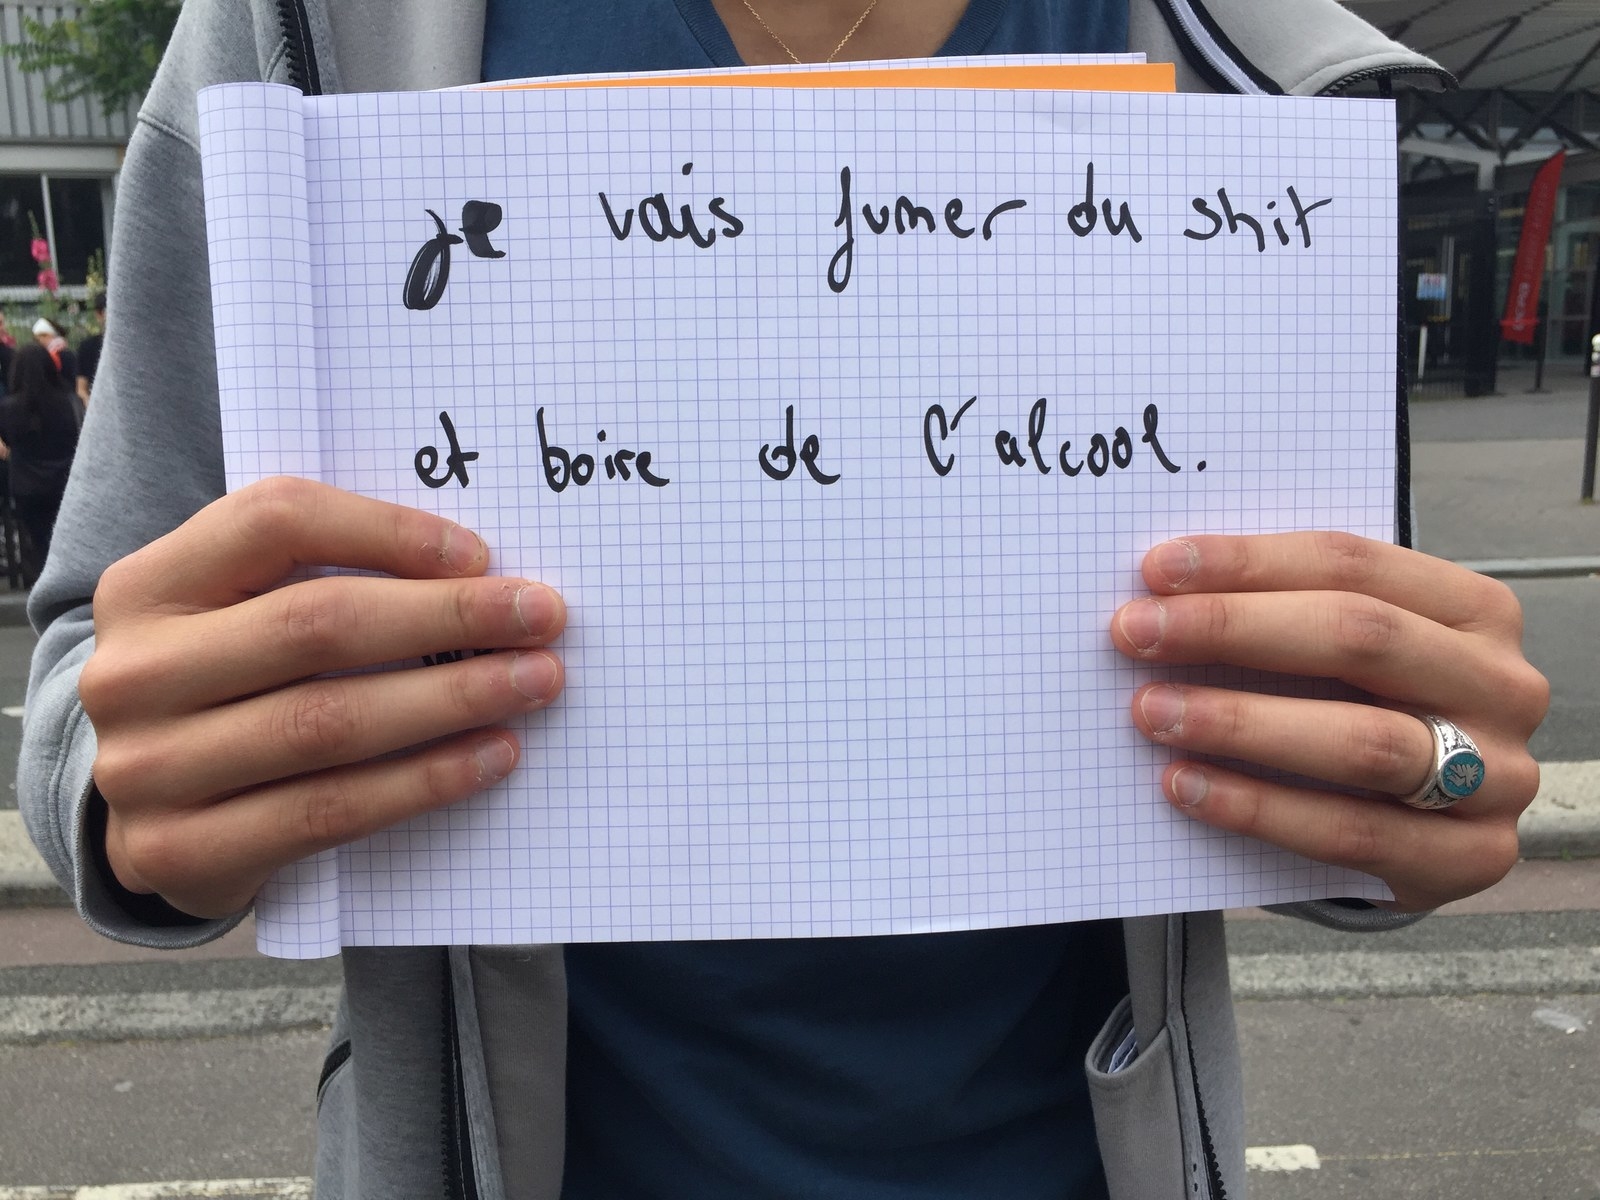 je vais fumer du shit
et boire de l'alcool.